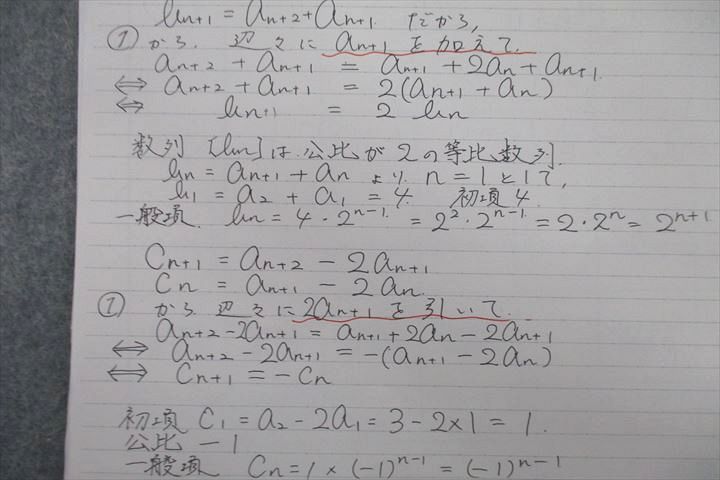 bn+1 = an+2 + an+1. だから,
① から. 辺々に an+1 を加えて.
an+2 + an+1 = an+1 + 2an + an+1.
⇔ an+2 + an+1 = 2(an+1 + an)
⇔ bn+1 = 2 bn
数列 {bn} は 公比が 2 の 等比数列.
bn = an+1 + an より. n = 1 として,
b1 = a2 + a1 = 4. 初項 4.
一般項. bn = 4・2^n-1. = 2^2・2^n-1 = 2・2^n = 2^n+1
Cn+1 = an+2 − 2an+1
Cn = an+1 − 2an.
① から 辺々に 2an+1 を 引いて.
an+2 − 2an+1 = an+1 + 2an − 2an+1
⇔ an+2 − 2an+1 = −(an+1 − 2an)
⇔ Cn+1 = −Cn
初項 C1 = a2 − 2a1 = 3 − 2×1 = 1.
公比 −1
一般項 Cn = 1 × (−1)^n−1 = (−1)^n−1